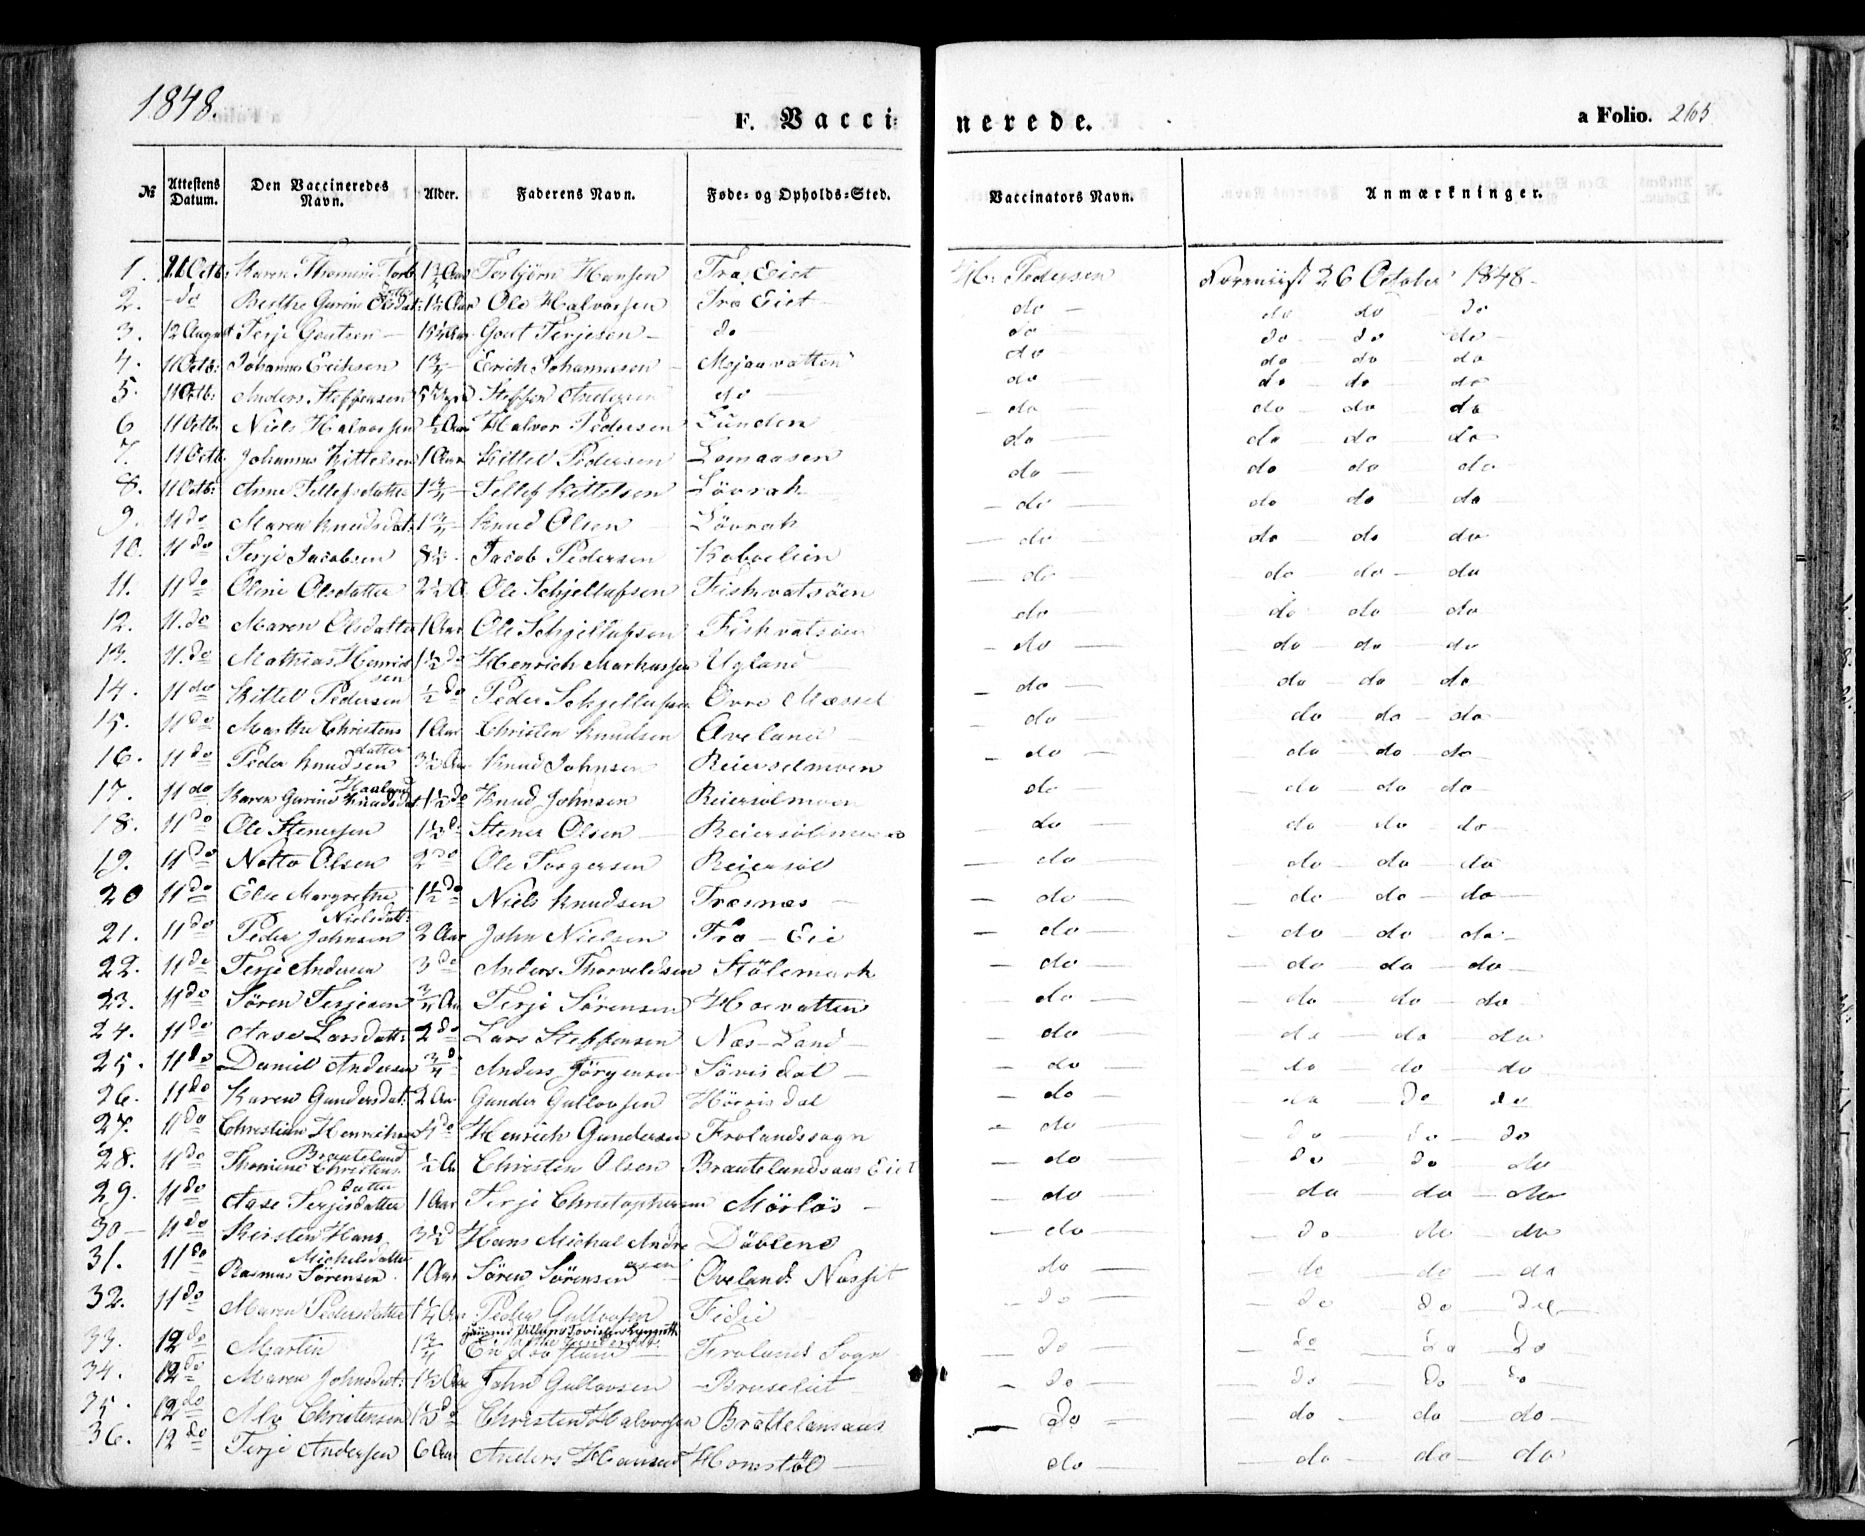 1848.
F. Vaccinerede.
a Folio. 265
№ Attestens Datum. Den Vaccineredes Navn. Alder. Faderens Navn. Føde- og Opholds-Sted. Vaccinators Navn. Anmærkninger.
1. 11 Octb: Karen Thomine Torb 1 3/4 Aar Torbjørn Hansen Fra Eiet H. Pedersen 26 October 1848
2. do Berthe Gurine Olsdat: 1 1/2 Aar Ole Halvorsen Fra Eiet do do do do
3. 12 August Terje Goutsen Gout Terjesen do do do do do
4. 11 Octb: Johannes Eriksen 1 3/4 Erich Johannesen Mjaavatten do do do do
5. 11 Octb: Anders Steffensen Steffen Andersen do do do do do
6 11 Octb: Niels Halvorsen 1/2 Aar Halvor Pedersen Lunden do do do do
7. 11 Octb. Johannes Kittelsen 1 Aar Kittel Pedersen Lomaasen do do do do
8. 11 Octb: Anne Tellefsdatter 1 3/4 Tellef Kittelsen Løvrak do do do do
9. 11 do Maren Knudsdat: 1 3/4 Knud Olsen Løvrak do do do do
10. 11 do Terje Jacobsen 8 1/2 Jacob Pedersen do do do do
11. 11 do Oline Olsdatter 2 1/2 A Ole Schjellufsen Fiskvatsøen do do do do
12. 11. do Maren Olsdatter 1 Aar Ole Schjellufsen Fiskvatsøen do do do do
13. 11. do Mathias Henrik 1 1/2 do Henrich Markussen Ugland do do do do
sen
14. 11 do Kittel Pedersen 1/2 do Peder Schjellufsen Øvre Mæssel do do do do
15. 11 do Marthe Christens 1 Aar Christen Knudsen Aveland do do do do
datter
16. 11 do Peder Knudsen 3 1/2 Aar Knud Johnsen Reierselmoen do do do do
Haaland
17. 11 do Karen Gurine Knudsdat 1 1/2 do Knud Johnsen Reiersølmoen do do do do
18. 11 do Ole Stenersen 1 1/2 d. Stener Olsen Reiersølmoen do do do do
19. 11 do Notto Olsen 2 do Ole Torgersen Reiersøl do do do do
20 11 do Else Margrethe 1 1/2 do Niels Knudsen Træsnæs do do do do
Nielsdatt:
21. 11 do Peder Johnsen 2 Aar John Nielsen Fra Eie do do do do
22. 11 do Terje Andersen 3 do Anders Thorveldsen Stølemark do do do do
23. 11 do Søren Terjesen 3/4 Aar Terje Sørensen Hoevatten do do do do
24. 11 do Aase Larsdatt: 2 do Lars Steffensen Næs-Land do do do do
25. 11 do Daniel Andersen 3/4 d. Anders Jørgensen Sørisdal do do do do
26. 11 do Karen Gundersdat: 2 Aar Gunder Gullovsen Hørrisdal do do do do
27. 11 do Christian Henrichsen do Henrich Gundersen Frolandssogn do do do do
Brauteland
28. 11 do Thomine Christens 1/2 Aar Christen Olsen Brautelandsaas Eiet do do do do
datter
29. 11 do Aase Terjesdatter 1 Aar Terje Christophersen Mørløs do do do do
30 11 do Kirsten Hans 3 1/2 d Hans Michal Andre Døblene do do do do
Michelsdatter
asen
31. 11 do Rasmus Sørensen 1 Aar Søren Sørensen Aveland do do do do
32. 11 do Maren Pedersdatter 1 1/4 Aar Peder Gullovsen Fidie do do do do
33. 12 do Martin 1 3/4 Frolands Sogn do do do do
34. 12 do Maren Johnsdat: 1 1/2 Aar John Gullovsen Bruseliet do do do do
35. 12 do Alv Christensen 1 1/2 do Christen Halvorsen Brattelansaas do do do do
36. 12 do Terje Andersen 6 Aar Anders Hansen Homstøl do do do do